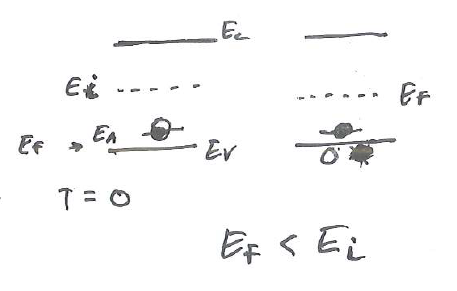 Ec
Ei
EF
EF → EA
EV
T = 0
EF < Ei